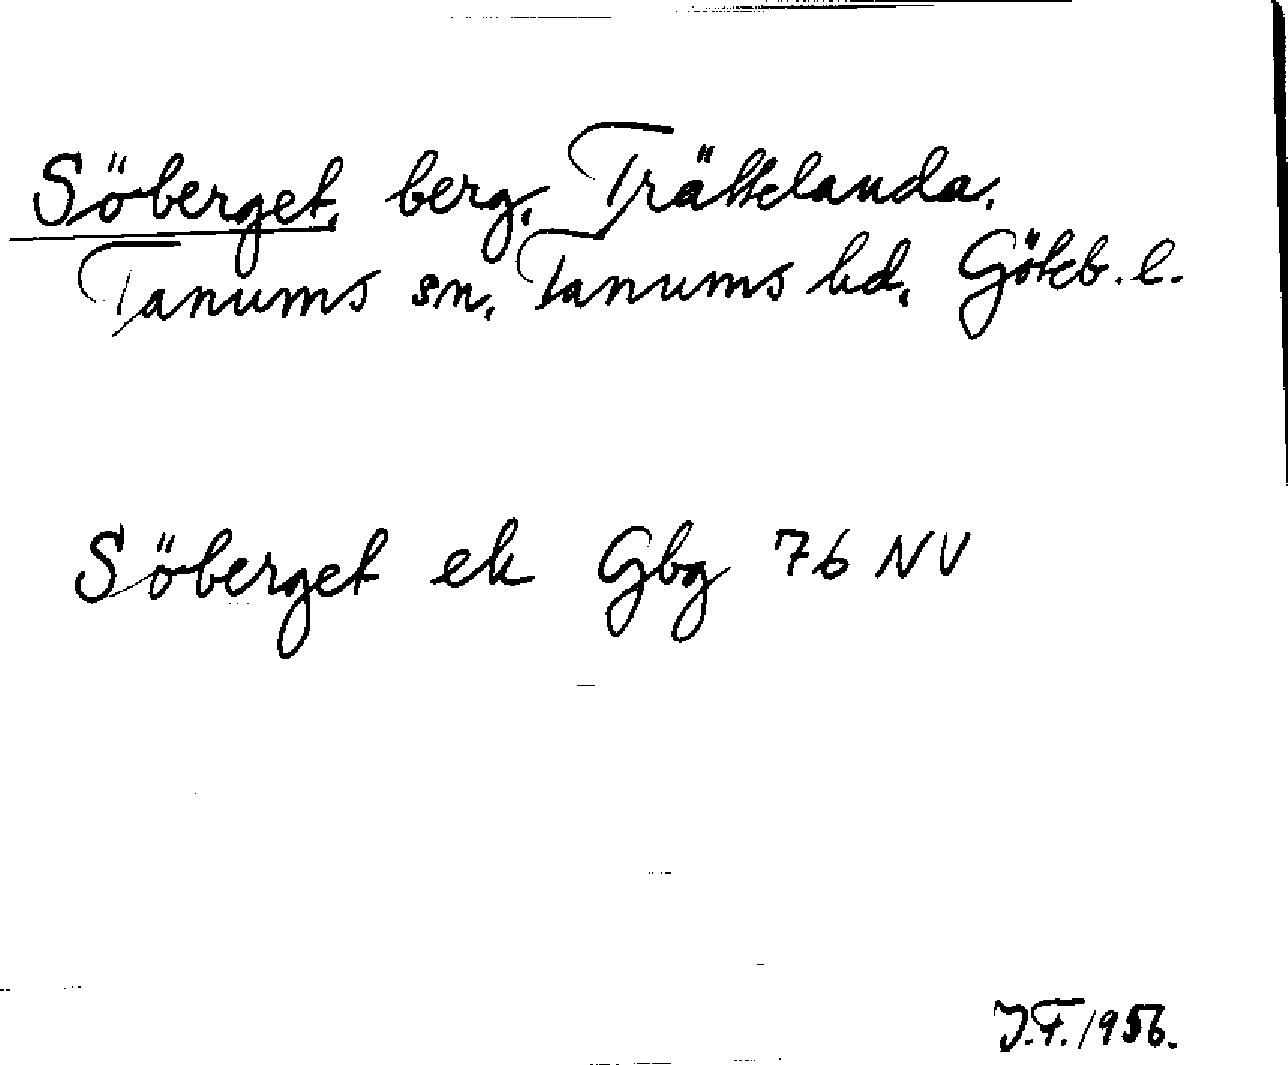 Söberget, berg, Trättelanda,
Tanums sn, Tanums hd, Göteb. l.
Söberget ek Gbg 76 NV
J.F. 1956.